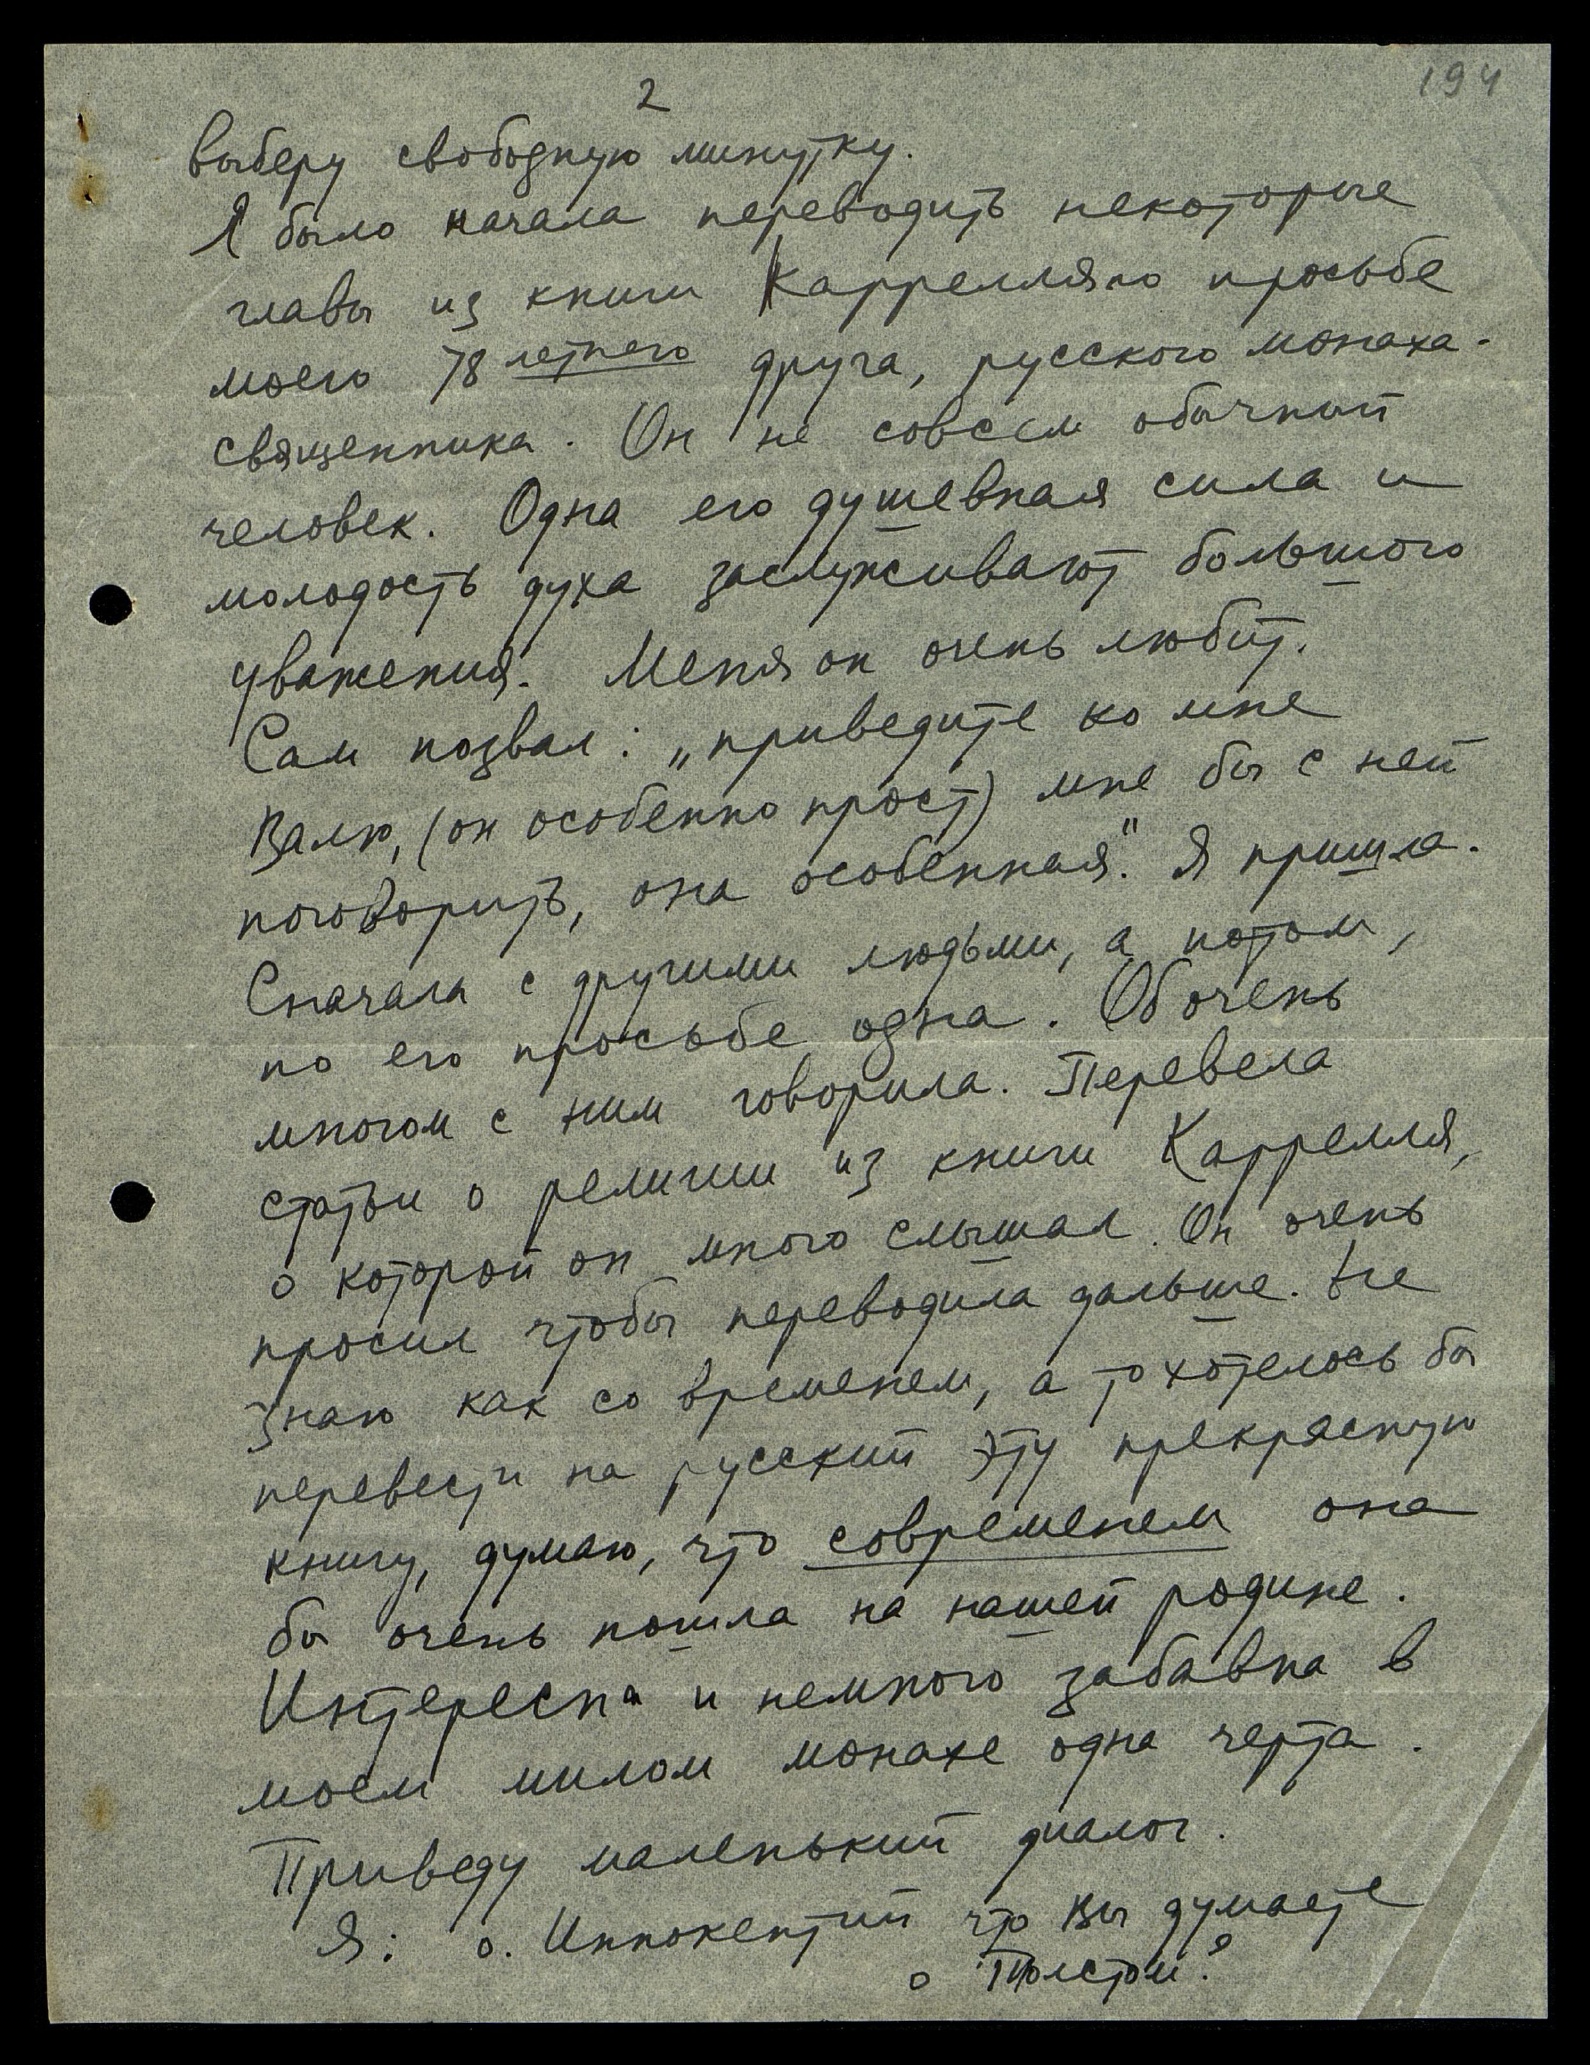 194
2
выберу свободную минутку.
Я было начала переводить некоторые
главы из книги Карреля по просьбе
моего 78 летнего друга, русского монаха-
священника. Он не совсем обычный
человек. Одна его душевная сила и
молодость духа заслуживают большого
уважения. Меня он очень любит.
Сам позвал: „приведите ко мне
Валю, (он особенно прост) мне бы с ней
поговорить, она особенная." Я пришла.
Сначала с другими людьми, а потом,
по его просьбе одна. Об очень
многом с ним говорила. Перевела
статьи о религии из книги Карреля,
о которой он много слышал. Он очень
просил чтобы переводила дальше. Не
знаю как со временем, а то хотелось бы
перевести на русский эту прекрасную
книгу, думаю, что современем она
бы очень пошла на нашей родине.
Интересна и немного забавна в
моем милом монахе одна черта.
Приведу маленький диалог.
Я: о. Иннокентий что Вы думаете
о Толстом?